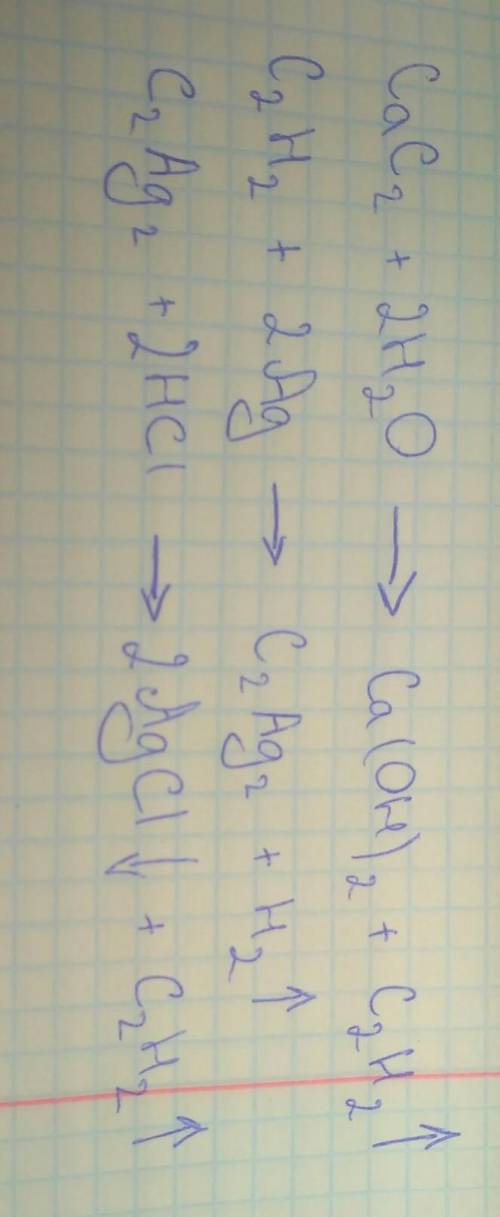 CaC₂ + 2H₂O → Ca(OH)₂ + C₂H₂↑
C₂H₂ + 2Ag → C₂Ag₂ + H₂↑
C₂Ag₂ + 2HCl → 2AgCl↓ + C₂H₂↑